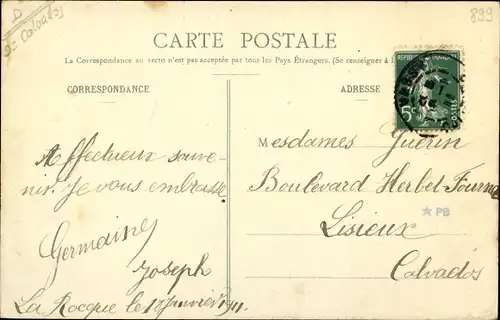 D
Calvados
899
CARTE POSTALE
La Correspondance au recto n'est pas acceptée par tous les Pays Étrangers. (Se renseigner à
CORRESPONDANCE
ADRESSE
REPUBLIQUE FRANÇAISE
5c
POSTES
Affectueux souve-
nir. Je vous embrasse
Germaine
Joseph
La Rocque le 1 Janvier 1911.
Mesdames Guérin
Boulevard Herbet-Fournet
Lisieux
PB
Calvados